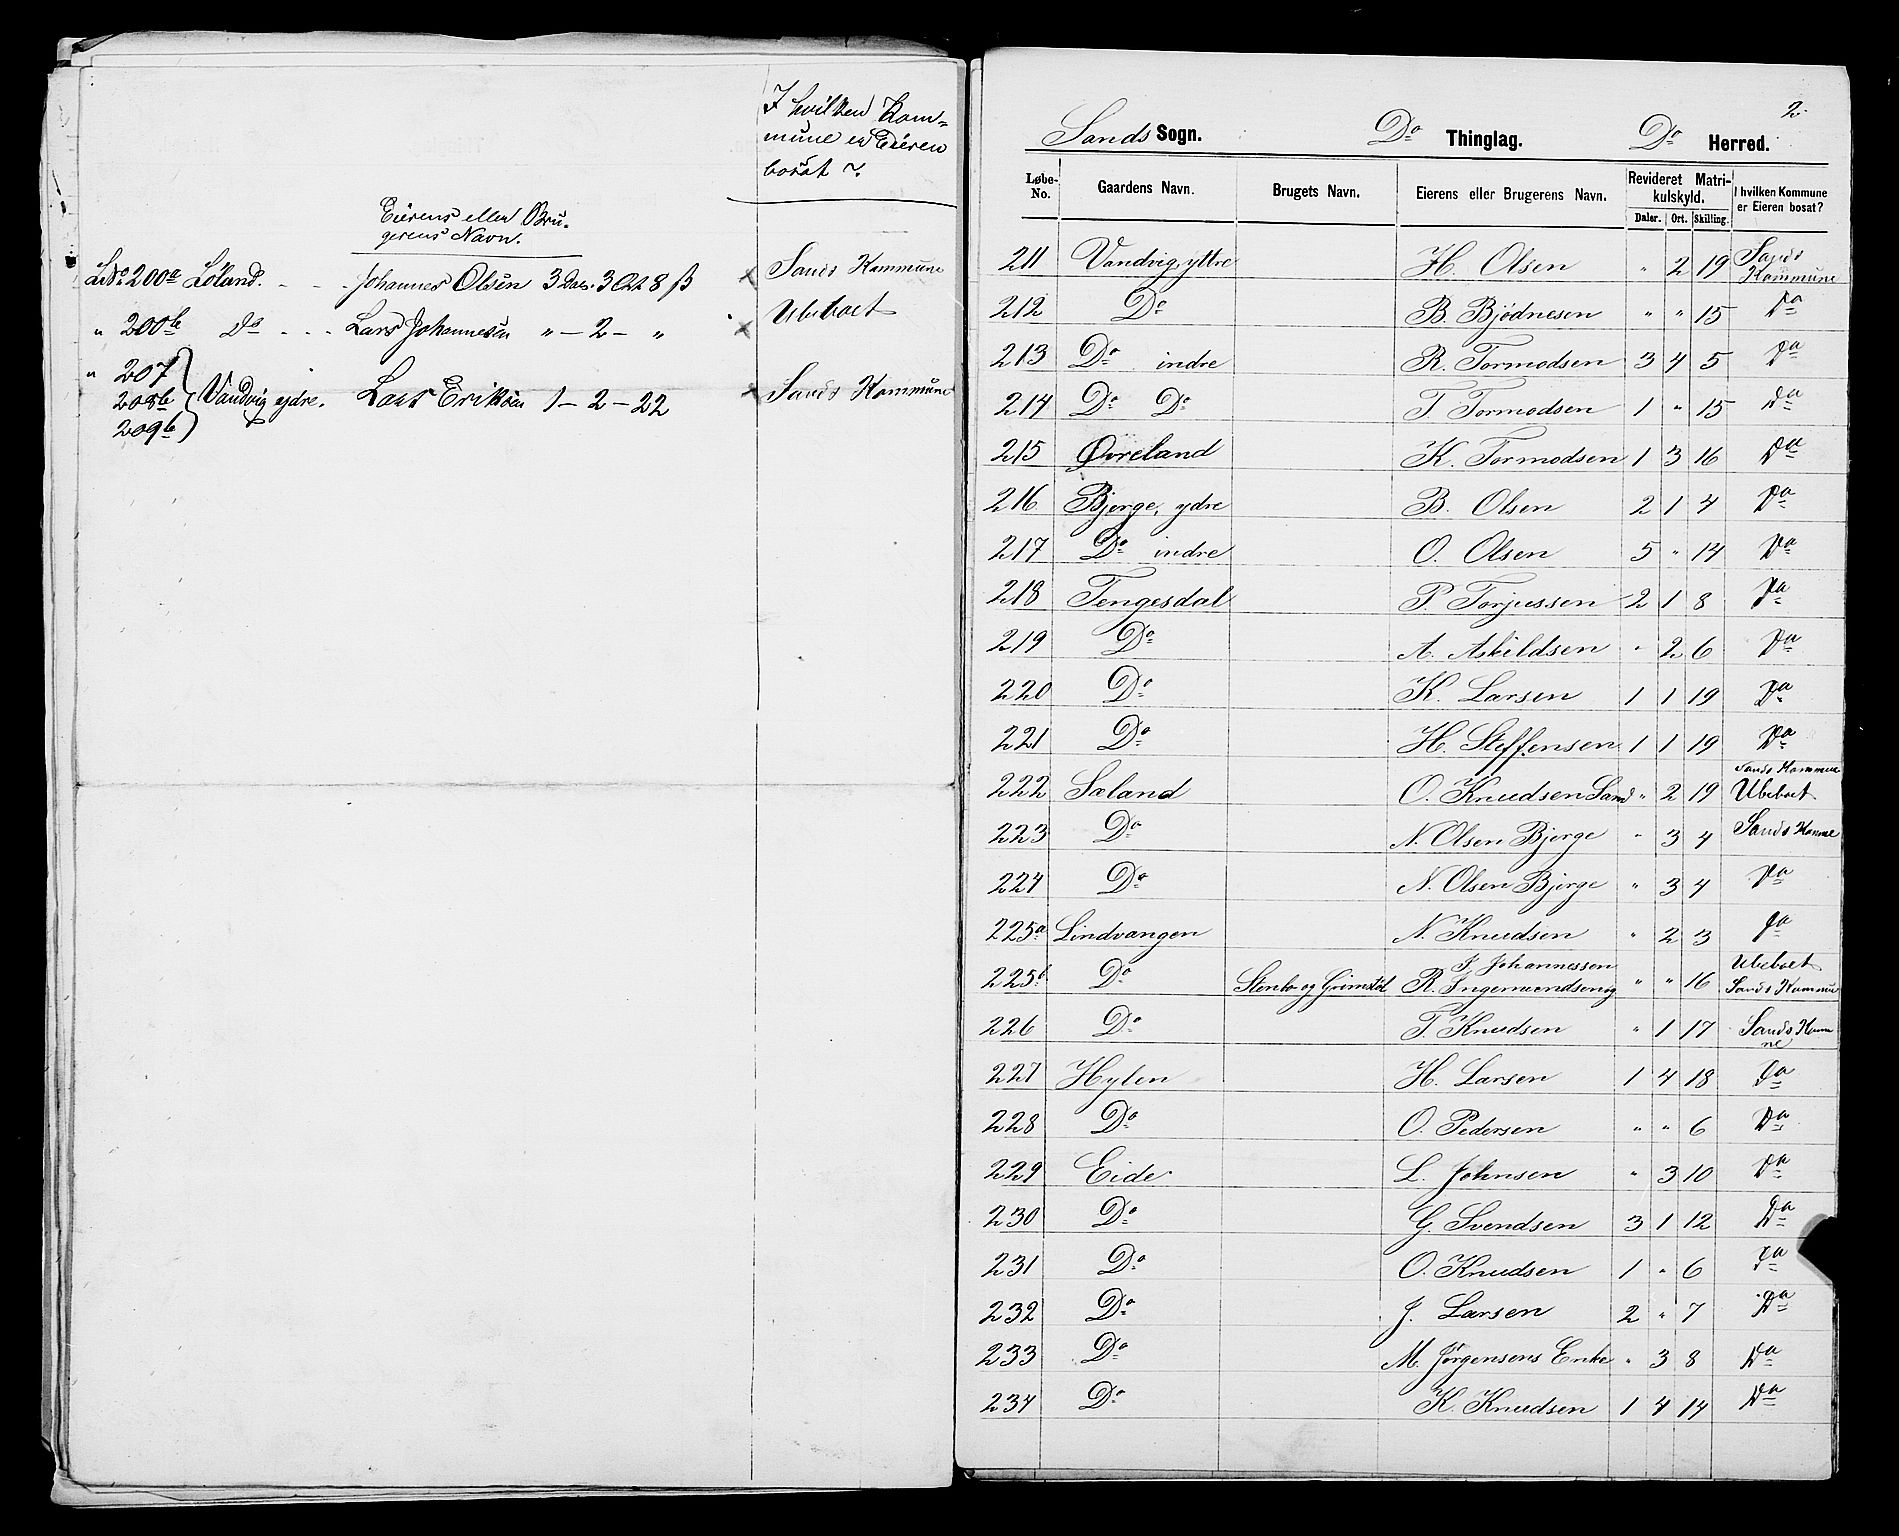 I hvilken Kom-
mune er Eieren
bosat ?.
Eierens eller Bru-
gerens Navn.
LNo. 200a Løland. - - - Johannes Olsen 3 Dar. 3 Ort 8 ß Sands Kommune
" 200b Do - - - Lars Johannesen " - 2 - " Ubeboet
" 207
208b Vandvig ydre. Lars Eriksen 1 - 2 - 22 Sands Kommune
209b
2
Sands Sogn. Do Thinglag. Do Herred.
Løbe-No. Gaardens Navn. Brugets Navn. Eierens eller Brugerens Navn. Revideret Matri-kulskyld. I hvilken Kommune er Eieren bosat?
Daler. Ort. Skilling.
211 Vandvig yttre H. Olsen " 2 19 Sands Kommune
212 Do B. Bjødnesen " " 15 Do
213 Do indre R. Tormodsen 3 4 5 Do
214 Do Do T. Tormodsen 1 " 15 Do
215 Øvreland K. Tormodsen 1 3 16 Do
216 Bjerge, ydre B. Olsen 2 1 4 Do
217 Do indre O. Olsen 5 " 14 Do
218 Tengesdal P. Torjussen 2 1 8 Do
219 Do A. Askildsen " 2 6 Do
220 Do K. Larsen 1 1 19 Do
221 Do H. Steffensen 1 1 19 Do
222 Saland O. Knudsen Sand " 2 19 Sands Kommune Ubeboet
223 Do N. Olsen Bjerge " 3 4 Sands Komme
224 Do N. Olsen Bjerge " 3 4 Do
225a Lindvangen N. Knudsen " 2 3 Do
225b Do Stenbo og Grimstöl R. Ingemundsen og J. Johannessen " " 16 Ubeboet Sands Kommune
226 Do T. Knudsen " 1 17 Sands Kommune
227 Hylen H. Larsen 1 4 18 Do
228 Do O. Pedersen " " 6 Do
229 Eide L. Johnsen " 3 10 Do
230 Do G. Svendsen 3 1 12 Do
231 Do O. Knudsen 1 " 6 Do
232 Do J. Larsen 2 " 7 Do
233 Do M. Jørgensens Enke " 3 8 Do
234 Do K. Knudsen 1 4 14 Do